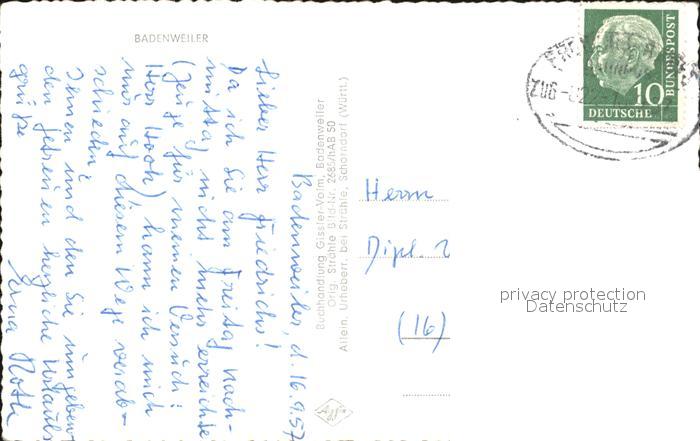 BADENWEILER
Badenweiler, d. 16.9.57
Lieber Herr Friedrichs!
Da ich Sie am Freitag nach-
mittag nicht mehr erreichte
(Zeuge für meinen Versuch:
Herr Hoch) kann ich mich
nur auf diesem Wege verab-
schieden.
Ihnen und den Sie umgeben-
den Getreuen herzliche Urlaubs
grüße
Erna Roth
Buchhandlung Gissler-Volm, Badenweiler
Orig. Strähle Bild-Nr. 2685/hAB 50
Allein. Urheber: bei Strähle, Schorndorf (Württ.)
Agfa
BUNDESPOST
10
DEUTSCHE
ZUG
Herrn
Dipl.
(16)
privacy protection
Datenschutz